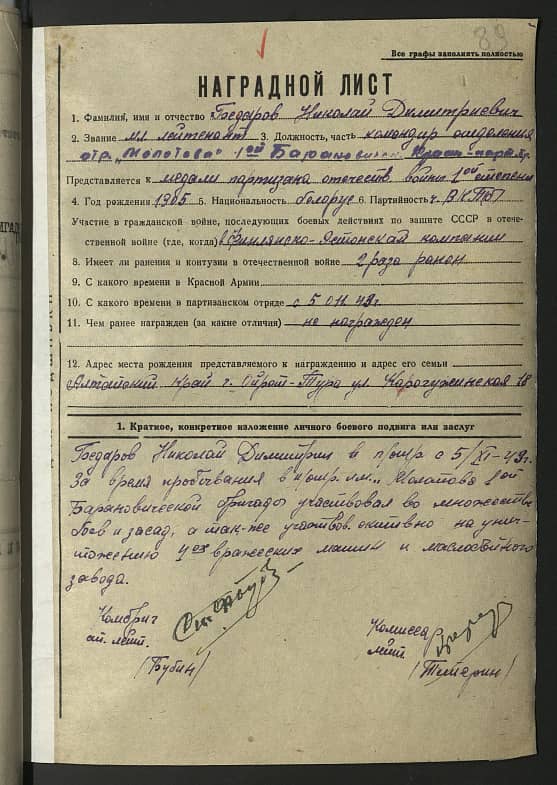 89
Все графы заполнять полностью
НАГРАДНОЙ ЛИСТ
1. Фамилия, имя и отчество Бедаров Николай Димитриевич
2. Звание мл лейтенант 3. Должность, часть командир отделения
отр. „Молотова" 1ой Баранович. парт. бр.
Представляется к медали партизана отечеств. войны 1ой степени
4. Год рождения 1905 5. Национальность белорус 6. Партийность ч. ВКП(б)
Участие в гражданской войне, последующих боевых действиях по защите СССР в отече-
ственной войне (где, когда) в Финлянско-Эстонской компании
8. Имеет ли ранения и контузии в отечественной войне 2 раза ранен
9. С какого времени в Красной Армии
10. С какого времени в партизанском отряде с 5 011 43г
11. Чем ранее награжден (за какие отличия) не награжден
12. Адрес места рождения представляемого к награждению и адрес его семьи
Алтайский край г. Ойрот-Тура ул. 18
1. Краткое, конкретное изложение личного боевого подвига или заслуг
Бедаров Николай Димитри в п/отр с 5/XI-43г.
За время пробывания в п/отр. им. „Молотова 1ой
Барановической бригады участвовал во множестве
боев и засад, а так-же участвов. активно на унич-
тожению 4ех вражеских машин и маслобойного
завода.
Комбриг
ст. лейт.
(Бубин)
Комиссар
лейт.
(Тетерин)